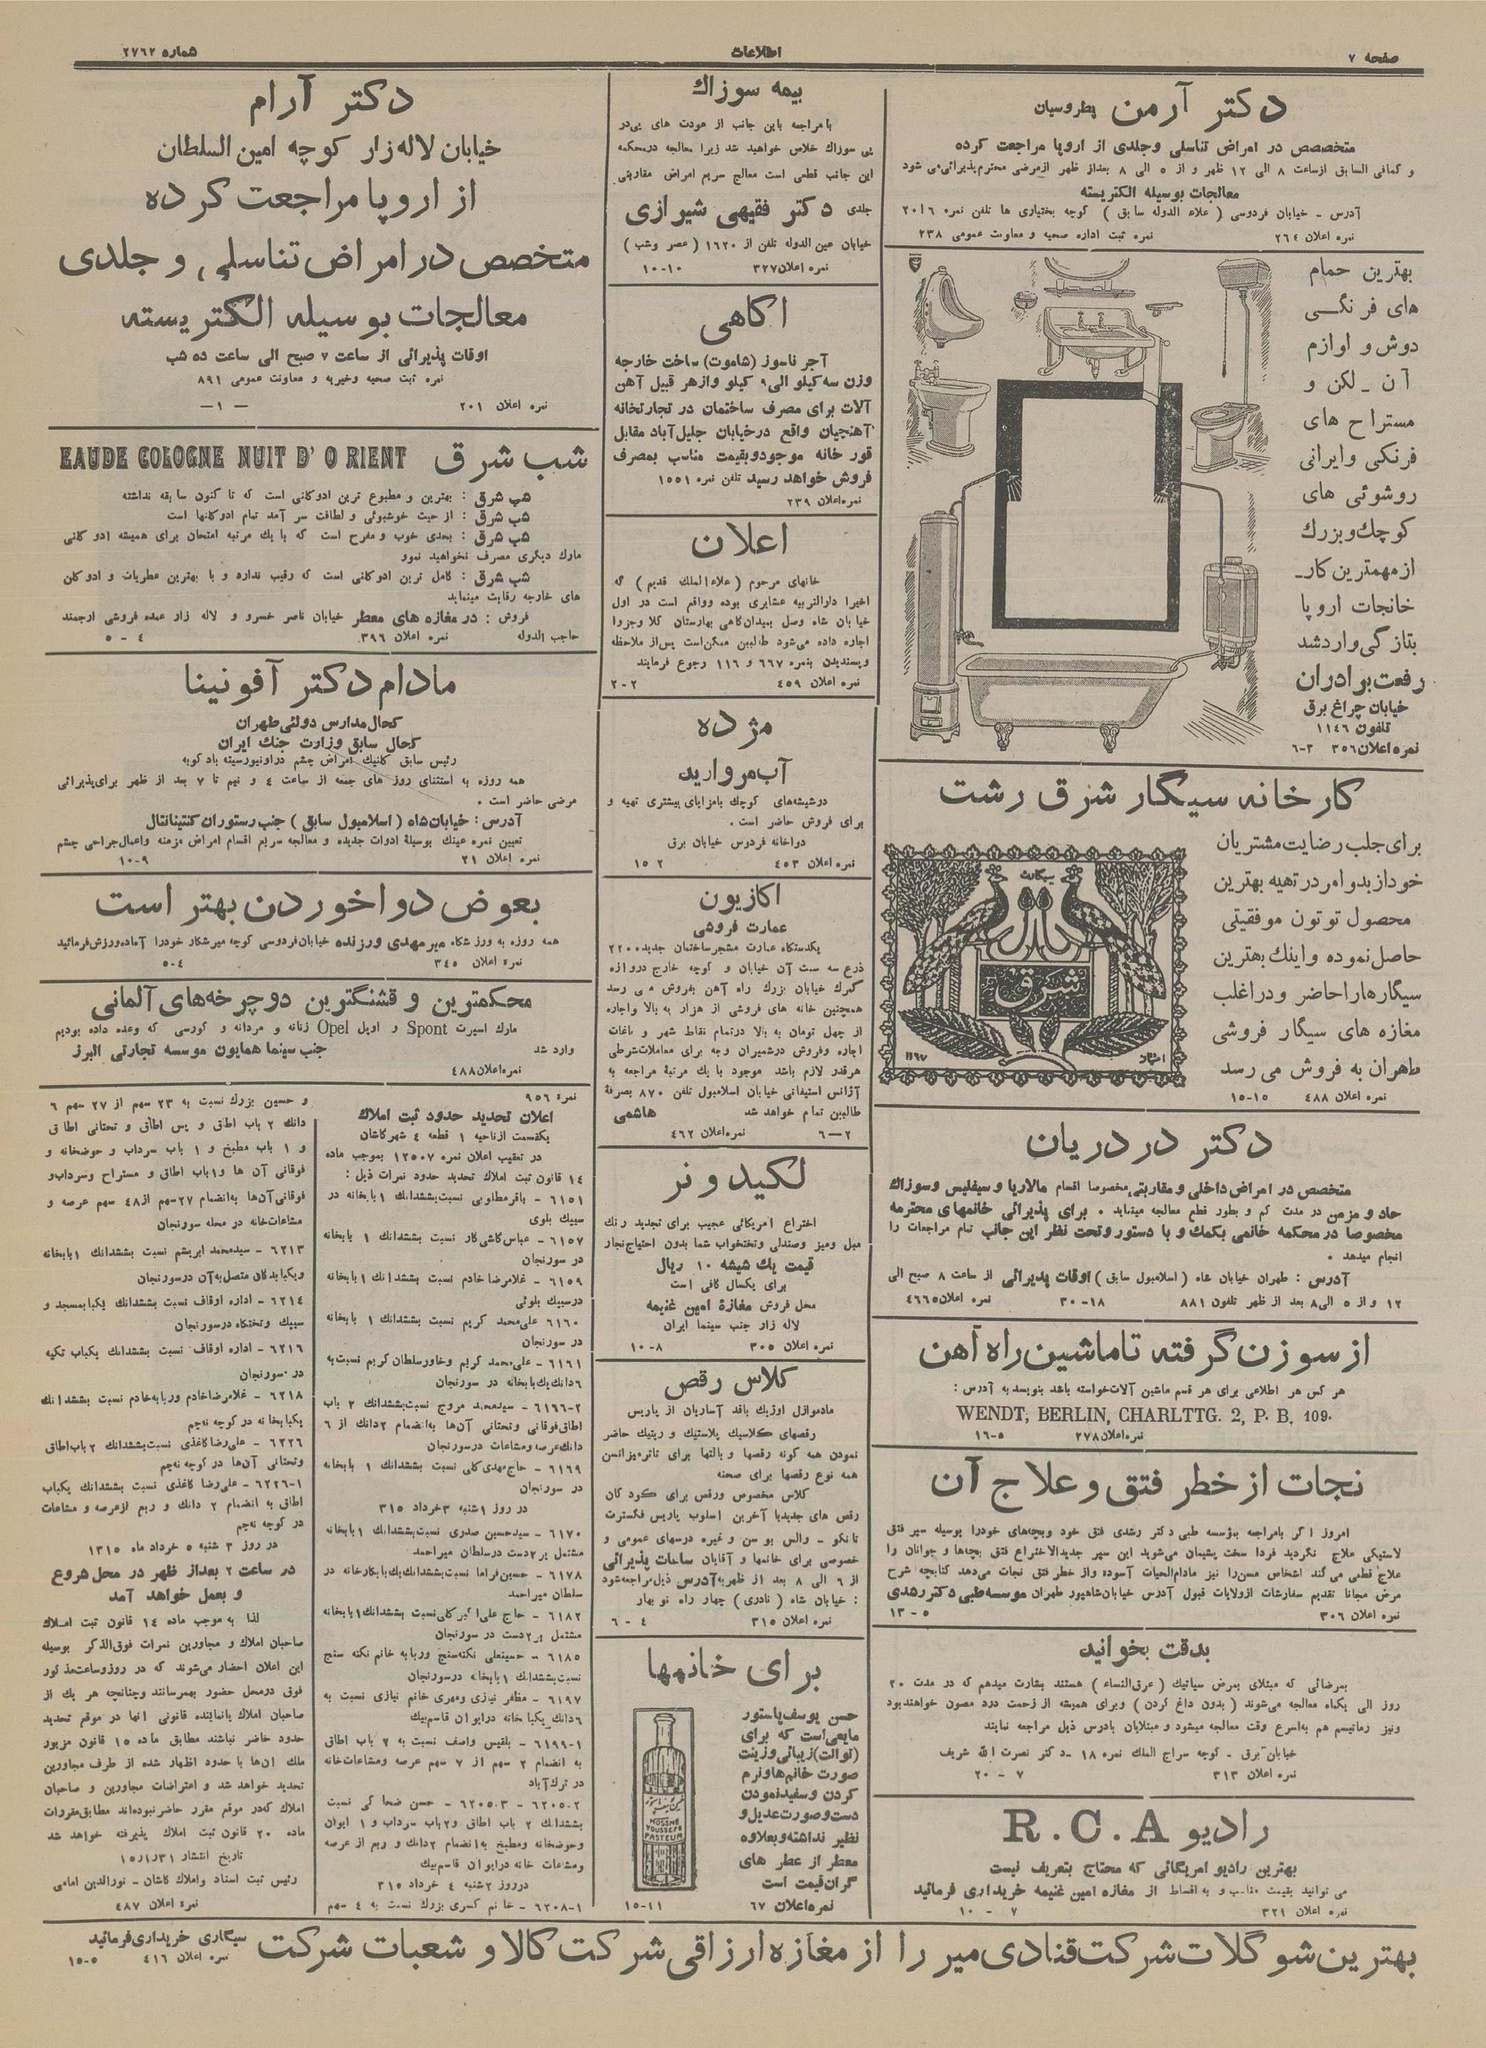 صفحه ۷
اطلاعات
شماره ۲۷۶۲
دکتر آرمن پطروسیان
متخصص در امراض تناسلی وجلدی از اروپا مراجعت کرده
و کمافی السابق ازساعت ۸ الی ۱۲ ظهر و از ۵ الی ۸ بعداز ظهر ازمرضی محترم پذیرائی می شود
معالجات بوسیله الکتریسته
آدرس - خیابان فردوسی ( علاء الدوله سابق ) کوچه بختیاری ها تلفن نمره ۲۰۱۶
نمره اعلان ۲۶۴ نمره ثبت اداره صحیه و معاونت عمومی ۲۳۸
بهترین حمام
های فرنگی
دوش و لوازم
آن - لگن و
مستراح های
فرنگی وایرانی
روشوئی های
کوچك وبزرك
ازمهمترین کار-
خانجات اروپا
بتازگی واردشد
رفعت برادران
خیابان چراغ برق
تلفون ۱۱۴۶
نمره اعلان ۳۵۶ ۳-۶
کارخانه سیگار شرق رشت
برای جلب رضایت مشتریان
خود از بدو امر در تهیه بهترین
محصول توتون موفقیتی
حاصل نموده و اینك بهترین
سیگارهارا حاضر و در اغلب
مغازه های سیگار فروشی
طهران به فروش می رسد
نمره اعلان ۴۸۸ ۱۵-۱۵
سیگارت
شرق
۱۱۶۷
دکتر دردریان
متخصص در امراض داخلی و مقاربتی مخصوصا اقسام مالاریا و سیفلیس و سوزاك
حاد و مزمن در مدت کم و بطور قطع معالجه مینماید . برای پذیرائی خانمهای محترمه
مخصوصا در محکمه خانمی بکمك و با دستور وتحت نظر این جانب تمام مراجعات را
انجام میدهد .
آدرس : طهران خیابان شاه ( اسلامبول سابق ) اوقات پذیرائی از ساعت ۸ صبح الی
۱۲ و از ۵ الی ۸ بعد از ظهر تلفون ۸۸۱ ۱۸-۳۰ نمره اعلان ۴۶۶۵
از سوزن گرفته تا ماشین راه آهن
هر کس هر اطلاعی برای هر قسم ماشین آلات خواسته باشد بنویسد به آدرس :
WENDT, BERLIN, CHARLTTG. 2, P. B. 109.
نمره اعلان ۲۷۸ ۵-۱۶
نجات از خطر فتق و علاج آن
امروز اگر بامراجعه بمؤسسه طبی دکتر رشدی فتق خود وبچه‌های خودرا بوسیله سپر فتق
لاستیکی علاج نگردید فردا سخت پشیمان می‌شوید این سپر جدیدالاختراع فتق بچه‌ها و جوانان را
علاج قطعی می‌کند اشخاص مسن را نیز مادام‌الحیات آسوده واز خطر فتق نجات می‌دهد کتابچه شرح
مرض مجانا تقدیم سفارشات ازولایات قبول آدرس خیابان‌شاهپور طهران موسسه‌طبی دکتررشدی
نمره اعلان ۳۰۶ ۵-۱۳
بدقت بخوانید
بمرضائی که مبتلای بمرض سیاتیك ( عرق‌النساء ) هستند بشارت میدهم که در مدت ۲۰
روز الی یکماه معالجه می‌شوند ( بدون داغ کردن ) وبرای همیشه از زحمت درد مصون خواهندبود
ونیز رماتیسم هم به‌اسرع وقت معالجه میشود و مبتلایان بادرس ذیل مراجعه نمایند
خیابان برق - کوچه سراج الملك نمره ۱۸ - دکتر نصرت الله شریف
نمره اعلان ۳۱۳ ۷-۲۰
رادیو R.C.A
بهترین رادیو امریکائی که محتاج بتعریف نیست
می توانید بقیمت مناسب و به اقساط از مغازه امین غنیمه خریداری فرمائید
نمره اعلان ۳۲۱ ۷-۱۰
بیمه سوزاك
با مراجعه باین جانب از عودت های پی‌در
پی سوزاك خلاص خواهید شد زیرا معالجه درمحکمه
این جانب قطعی است معالج سریم امراض مقاربتی
جلدی دکتر فقیهی شیرازی
خیابان عین الدوله تلفن از ۱۶۲۰ ( عصر وشب )
نمره اعلان ۳۲۷ ۱۰-۱۰
اکاهی
آجر ناسوز (شاموت) ساخت خارجه
وزن سه کیلو الی ۹ کیلو وازهر قبیل آهن
آلات برای مصرف ساختمان در تجارتخانه
آهنچیان واقع درخیابان جلیل‌آباد مقابل
قور خانه موجود و بقیمت مناسب بمصرف
فروش خواهد رسید تلفن نمره ۱۵۵۱
نمره اعلان ۲۳۹
اعلان
خانهای مرحوم ( علاءالملك قدیم ) که
اخیرا دارالتربیه عشایری بوده وواقم است در اول
خیابان شاه وصل بمیدان‌گاهی بهارستان کلا وجزوا
اجاره داده می‌شود طالبین ممکن‌است پس‌از ملاحظه
وپسندیدن بنمره ۶۶۷ و ۱۱۶ رجوع فرمایند
نمره اعلان ۴۵۹ ۲-۲
مژده
آب‌مروارید
درشیشه‌های کوچك بامزایای بیشتری تهیه و
برای فروش حاضر است .
دواخانه فردوس خیابان برق
نمره اعلان ۴۵۳ ۲ ۱۵
اکازیون
عمارت فروشی
یکدستگاه عمارت مشجرساختمان جدید ۲۲۰۰
ذرع سه سمت آن خیابان و کوچه خارج دروازه
گمرك خیابان بزرك راه آهن بفروش می رسد
همچنین خانه های فروشی از هزار به بالا واجاره
از چهل تومان به بالا درتمام نقاط شهر و باغات
اجاره وفروش درشمیران وجه برای معاملات‌شرطی
هرقدر لازم باشد موجود با یك مرتبهٔ مراجعه به
آژانس استیفانی خیابان اسلامبول تلفن ۸۷۰ بصرفهٔ
طالبین تمام خواهد شد هاشمی
۲-۶ نمره اعلان ۴۶۲
لکید ونر
اختراع امریکائی عجیب برای تجدید رنك
مبل ومیز وصندلی وتختخواب شما بدون احتیاج نجار
قیمت یك شیشه ۱۰ ریال
برای یکسال کافی است
محل فروش مغازهٔ امین غنیمه
لاله زار جنب سینما ایران
نمره اعلان ۳۰۵ ۸-۱۰
کلاس رقص
رقصهای کلاسیك پلاستیك و ریتیك حاضر
نمودن همه گونه رقصها و بالتها برای تاتر میزانسن
همه نوع رقصها برای صحنه
کلاس مخصوص ورقص برای کودکان
رقص های جدیدبا آخرین اسلوب پاریس فکسترت
تانکو - والس بوسن و غیره درسهای عمومی و
خصوصی برای خانمها و آقایان ساعات پذیرائی
از ۶ الی ۸ بعد از ظهر به آدرس ذیل‌مراجعه‌شود
: خیابان شاه ( نادری ) چهار راه نو بهار
نمره اعلان ۳۱۵ ۴-۶
برای خانمها
حسن یوسف پاستور
مایعی‌است که برای
(توالت)زیبائی‌وزینت
صورت خانم‌هاونرم
کردن و سفیدنمودن
دست‌و صورت‌عدیل‌و
نظیر نداشته‌و بعلاوه
معطر از عطر های
گران‌قیمت است
نمره‌اعلان ۶۷ ۱۱-۱۵
HUSSNE
YOUSSEFE
PASTEUR
دکتر آرام
خیابان لاله زار کوچه امین السلطان
از اروپا مراجعت کرده
متخصص در امراض تناسلی و جلدی
معالجات بوسیله الکتریسته
اوقات پذیرائی از ساعت ۷ صبح الی ساعت ده شب
نمره ثبت صحیه وخیریه و معاونت عمومی ۸۹۱
نمره اعلان ۲۰۱ -۱-
شب شرق EAUDE COLOGNE NUIT D' O RIENT
شب شرق : بهترین و مطبوع ترین ادوکلنی است که تا کنون سابقه نداشته
شب شرق : از حیث خوشبوئی و لطافت سر آمد تمام ادوکلنها است
شب شرق : بحدی خوب و مفرح است که با یك مرتبه امتحان برای همیشه ادوکلنی
مارك دیگری مصرف نخواهید نمود
شب شرق : کامل ترین ادوکلنی است که رقیب ندارد و با بهترین عطریات و ادوکلن
های خارجه رقابت مینماید
فروش : در مغازه های معطر خیابان ناصر خسرو و لاله زار عمده فروشی ارجمند
حاجب الدوله نمره اعلان ۳۹۶ ۴-۵
مادام دکتر آفونینا
کحال مدارس دولتی طهران
کحال سابق وزارت جنك ایران
رئیس سابق کلنیك امراض چشم دراونیورسیته بادکوبه
همه روزه به استثنای روز های جمعه از ساعت ۴ و نیم تا ۷ بعد از ظهر برای پذیرائی
مرضی حاضر است .
آدرس : خیابان شاه ( اسلامبول سابق ) جنب رستوران کنتیننتال
تعیین نمره عینك بوسیلهٔ ادوات جدیده و معالجه سریم اقسام امراض مزمنه واعمال‌جراحی چشم
نمره اعلان ۲۱ ۹-۱۰
بعوض دوا خوردن بهتر است
همه روزه به ورزشگاه میرمهدی ورزنده خیابان فردوسی کوچه میرشکار خودرا آماده ورزش فرمائید
نمره اعلان ۳۴۵ ۴-۵
محکمترین و قشنگترین دوچرخه‌های آلمانی
مارك اسپرت Spont و اوپل Opel زنانه و مردانه و کورسی که وعده داده بودیم
وارد شد جنب سینما همایون موسسه تجارتی البرز
نمره‌اعلان ۴۸۸
نمرهٔ ۹۵۶
اعلان تحدید حدود ثبت املاك
یکقسمت ازناحیه ۱ قطعه ۴ شهر کاشان
در تعقیب اعلان نمره ۱۲۵۰۷ بموجب ماده
۱۴ قانون ثبت املاك تحدید حدود نمرات ذیل :
۶۱۵۱ - باقرمطلوبی نسبت‌بششدانك ۱ بابخانه در
۶۱۵۷ - عباس‌کاشی‌کار نسبت بششدانك ۱ بابخانه
در سورنجان
۶۱۵۹ - غلامرضا خادم نسبت بششدانك ۱ بابخانه
۶۱۶۰ - علی‌محمد کریم نسبت بششدانك ۱ بابخانه
در سورنجان
۶۱۶۱ - علی‌محمد کریم وخاورسلطان کریم نسبت به
۶دانك‌یك‌بابخانه در سورنجان
۲-۶۱۶۶ - سیدمحمد مروج نسبت‌بششدانك ۲ باب
اطاق‌فوقانی وتحتانی آن‌ها به‌انضمام ۲دانك از ۶
دانك‌عرصه ومشاعات درسورنجان
۶۱۶۹ - حاج‌مهدی‌کلی نسبت بششدانك ۱ بابخانه
در سورنجان
در روز ۱شنبه ۳خرداد ۳۱۵
۶۱۷۰ - سیدحسین صدری نسبت‌بششدانك ۱بابخانه
مشتمل بر۲دست درسلطان میراحمد
سلطان میراحمد
مشتمل بر۲دست در سورنجان
۶۱۸۵ - حسینعلی نکته‌سنج وربابه خانم نکته سنج
نسبت‌بششدانك ۱بابخانه درسورنجان
۶۱۹۷ - مظفر نیازی ومهری خانم نیازی نسبت به
۶دانك یکبابخانه درایوان قاسم‌بیك
۱-۶۱۹۹ - بلقیس واصف نسبت به ۲ باب اطاق
به انضمام ۲ سهم از ۷ سهم عرصه ومشاعات‌خانه
در ترك‌آباد
بششدانك ۲ باب اطاق و۲باب سرداب و ۱ ایوان
وحوضخانه ومطبخ به‌انضمام ۲دانك و ربم از عرصه
ومشاعات خانه درایوان قاسم‌بیك
درروز ۲شنبه ۴ خرداد ۳۱۵
۱-۶۲۰۸ - خانم کسری بزرك نسبت به ۴ سهم
و حسین بزرك نسبت به ۲۳ سهم از ۲۷ سهم ۶
دانك ۲ باب اطاق و پس اطاق و تحتانی اطاق
و ۱ باب مطبخ و ۱ باب سرداب و حوضخانه و
فوقانی آن ها و۱باب اطاق و مستراح وسرداب‌و
فوقانی‌آن‌ها به‌انضمام ۲۷سهم از۴۸ سهم عرصه و
مشاعات‌خانه در محله سورنجان
۶۲۱۳ - سیدمحمد ابریشم نسبت بششدانك ۱بابخانه
ویکبابدکان متصل‌به‌آن درسورنجان
۶۲۱۴ - اداره اوقاف نسبت بششدانك یکبابمسجد و
۶۲۱۶ - اداره اوقاف نسبت بششدانك یکباب تکیه
در سورنجان
۶۲۱۸ - غلامرضاخادم وربابه‌خادم نسبت بششدانك
یکبابخانه در کوچه نه‌چم
۶۲۲۶ - علی‌رضاکاغذی نسبت‌بششدانك ۲باب‌اطاق
وتحتانی آن‌ها در کوچه نه‌چم
۱-۶۲۲۶ - علی‌رضا کاغذی نسبت بششدانك یکباب
اطاق به انضمام ۲ دانك و ربم ازعرصه و مشاعات
در کوچه نه‌چم
در روز ۳ شنبه ۵ خرداد ماه ۱۳۱۵
در ساعت ۲ بعداز ظهر در محل شروع
و بعمل خواهد آمد
لذا به موجب ماده ۱۴ قانون ثبت املاك
صاحبان املاك و مجاورین نمرات فوق‌الذکر بوسیله
این اعلان احضار می‌شوند که در روزوساعت‌مذکور
فوق درمحل حضور بهمرسانند وچنانچه هر یك از
صاحبان املاك یانماینده قانونی آنها در موقم تحدید
حدود حاضر نباشند مطابق ماده ۱۵ قانون مزبور
ملك آن‌ها با حدود اظهار شده از طرف مجاورین
تحدید خواهد شد و اعتراضات مجاورین و صاحبان
املاك که‌در موقم مقرر حاضرنبوده‌اند مطابق‌مقررات
ماده ۲۰ قانون ثبت املاك پذیرفته خواهد شد
تاریخ انتشار ۱۵/۱/۳۱
رئیس ثبت اسناد واملاك کاشان - نورالدین امامی
نمره اعلان ۴۸۷
بهترین شوگلات شرکت قنادی میر را از مغازه ارزاقی شرکت کالا و شعبات شرکت سیگاری خریداری فرمائید
نمره اعلان ۴۱۶ ۵-۱۵